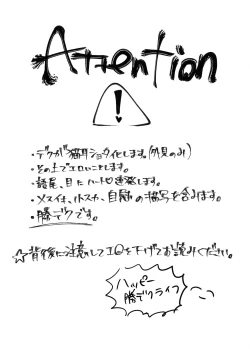 Attention
!
・デクが猫耳ショタ化します。(外見のみ)
・その上でエロいことします。
・語尾、目にハート♡連発します。
・メスイキ、トスカ、自慰の描写を含みます。
・勝デクです。
☆背後に注意して音量を下げてお読みください。
ハッピー
勝デクライフ